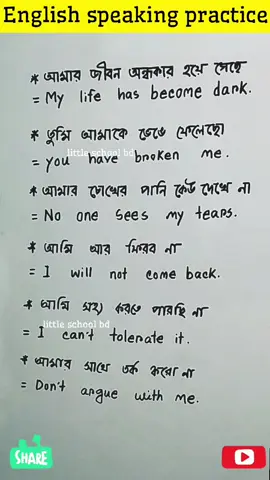 English speaking practice
* আমার জীবন অন্ধকার হয়ে গেছে
= My life has become dark.
* তুমি আমাকে ভেঙে ফেলেছো
little school bd
= you have broken me.
* আমার চোখের পানি কেউ দেখে না
= No one sees my tears.
* আমি আর ফিরব না
= I will not come back.
* আমি সহ্য করতে পারছি না
little school bd
= I can't tolerate it.
* আমার সাথে তর্ক করো না
= Don't argue with me.
SHARE